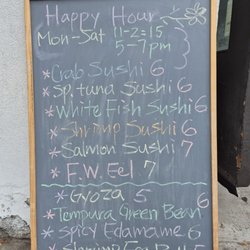 Happy Hour
Mon-Sat 11-2:15
5-7pm
*Crab Sushi 6
*Sp. tuna Sushi 6
*White Fish Sushi 6
*Shrimp Sushi 6
*Salmon Sushi 7
*F.W. Eel 7
*Gyoza 5
*Tempura Green Bean 6
*Spicy Edamame 6
*Shrimp